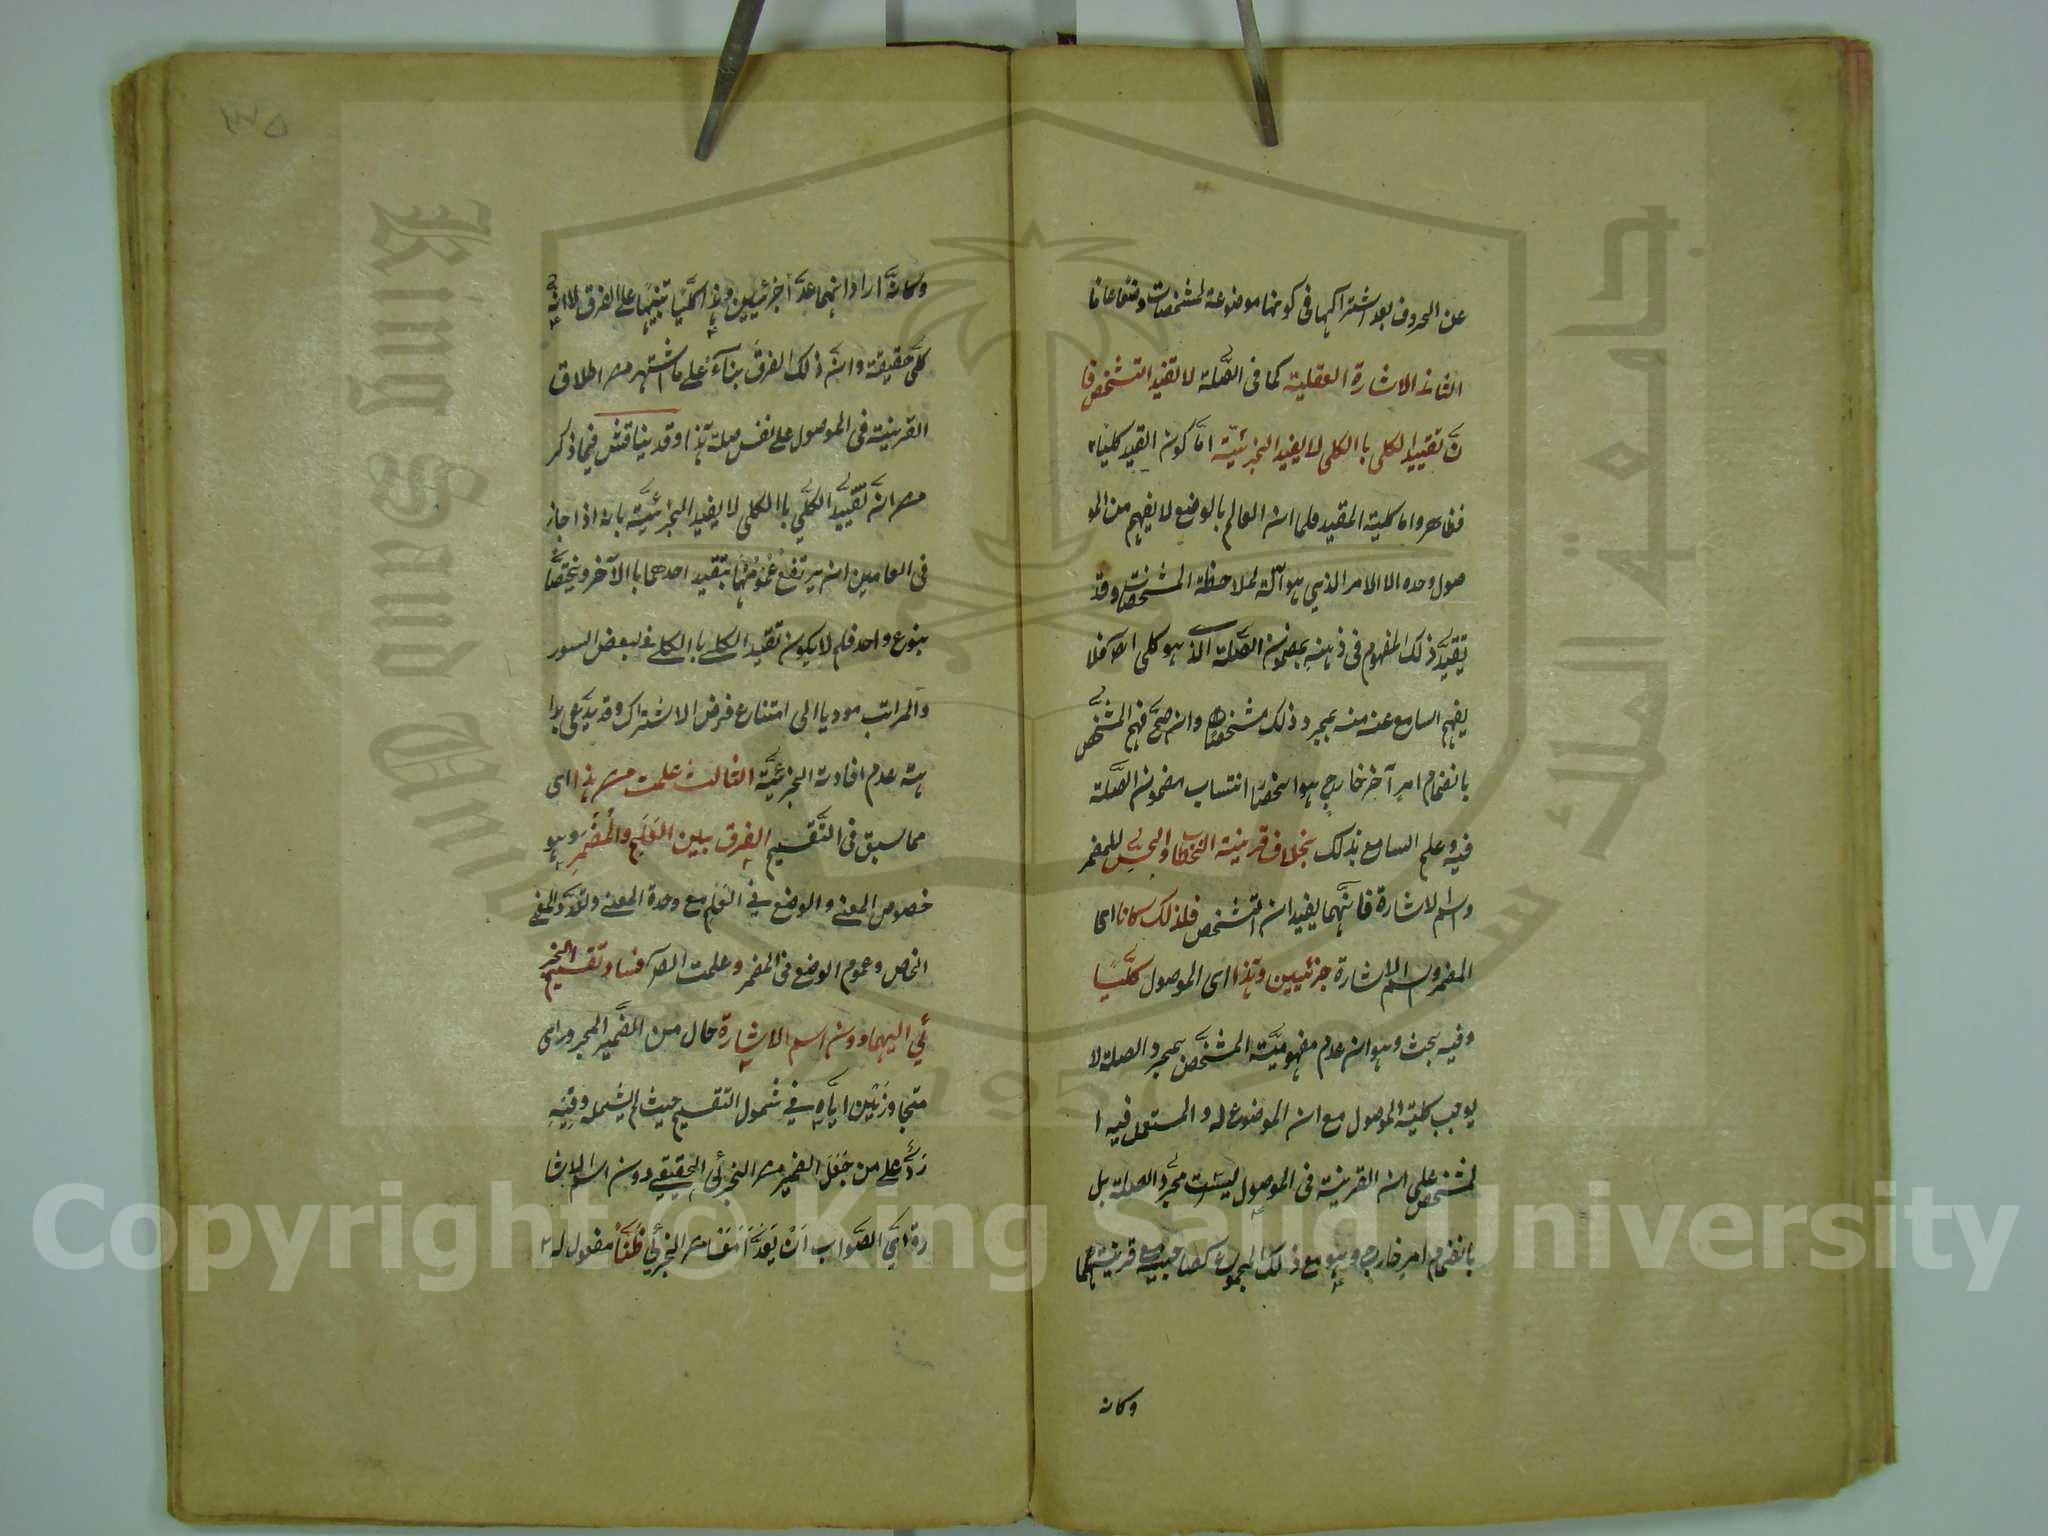 عن الحروف بعد اشتراكها في كونها موضوعة لمشخصات وضعا عاما
الثاني الاشارة العقلية كما في الصلة لا تفيد التشخص فا
نّ تقييد الكلي باالكلي لا يفيد الجزئية امّا كون القيد كليّا
فظاهر واما كلية المقيد فلما ان العالم بالوضع لا يفهم من المو
صول وحده الا الامر الذي هو آلة لملاحظة المشخصات وقد
تقيّد ذلك المفهوم في ذهنه بمضمون الصلة الذي هو كلي ايضا فلا
يفهم السامع عنه منه بمجرد ذلك مشخصا وان صحّ فهم المشخص
بانضمام امر آخر خارج هو انحصار انتساب مضمون الصّلة
فيه وعلم السامع بذلك بخلاف قرينة الخطاب والحسّ للمضمر
واسم الاشارة فانّهما يفيدان التشخص فلذلك كانا اي
المضمر واسم الاشارة جزئيين وهذا اي الموصول كلّيّا
وفيه بحث وهو ان عدم مفهوميّة المشخّص بمجرد الصلة لا
يوجب كلية الموصول مع ان الموضوع له والمستعمل فيه ا
لمشخص على ان القرينة في الموصول ليست مجرّد الصلة بل
بانضمام امر خارج وهو مع ذلك المجموع كصاحبيه مع قرينتهما
وكانه
٣٥
وكانّه اراد انهما عدّا جزئيين وهذا كليّا تنبيها على الفرق لا انه
كلّي حقيقة وانّ ذلك الفرق بناءً على ما اشتهر من اطلاق
القرينة في الموصول على نفس صلة هذا وقد يناقش فيما ذكر
من انّ تقييد الكلّي باالكلي لا يفيد الجزئيّة بانه اذا جاز
في العامين ان يرتفع عمومهما بتقيد احدهما باالآخر ويختصّا
بنوع واحد فلم لا يكون تقيد الكلي باالكلي في بعض الصور
والمراتب موديا الى امتناع فرض الاشتراك وقد يدّعى بدا
هة عدم افادته الجزئيّة الثالث علمت من هذا اي
مما سبق في التّقسيم الفرق بين العَلَم والمُضْمَر وهو
خصوص المعنى والوضع في العلم مع وحدة المعنى وتعدّد المعنى
الخاص وعموم الوضع في المضمر وعلمت ايضا فساد تقسيم الجز
ئي اليهما دون اسم الاشارة حال من الضّمير المجرور اي
متجاوزين ايّاه في شمول التقسيم حيث لم يشمله وفيه
رَدٌّ على من جَعَلَ الضمير من الجزئي الحقيقي دون اسم الاشا
رة اي الصّواب اَنْ يَعُدَّا معًا من الجزئي ظَنًّا مفعول له